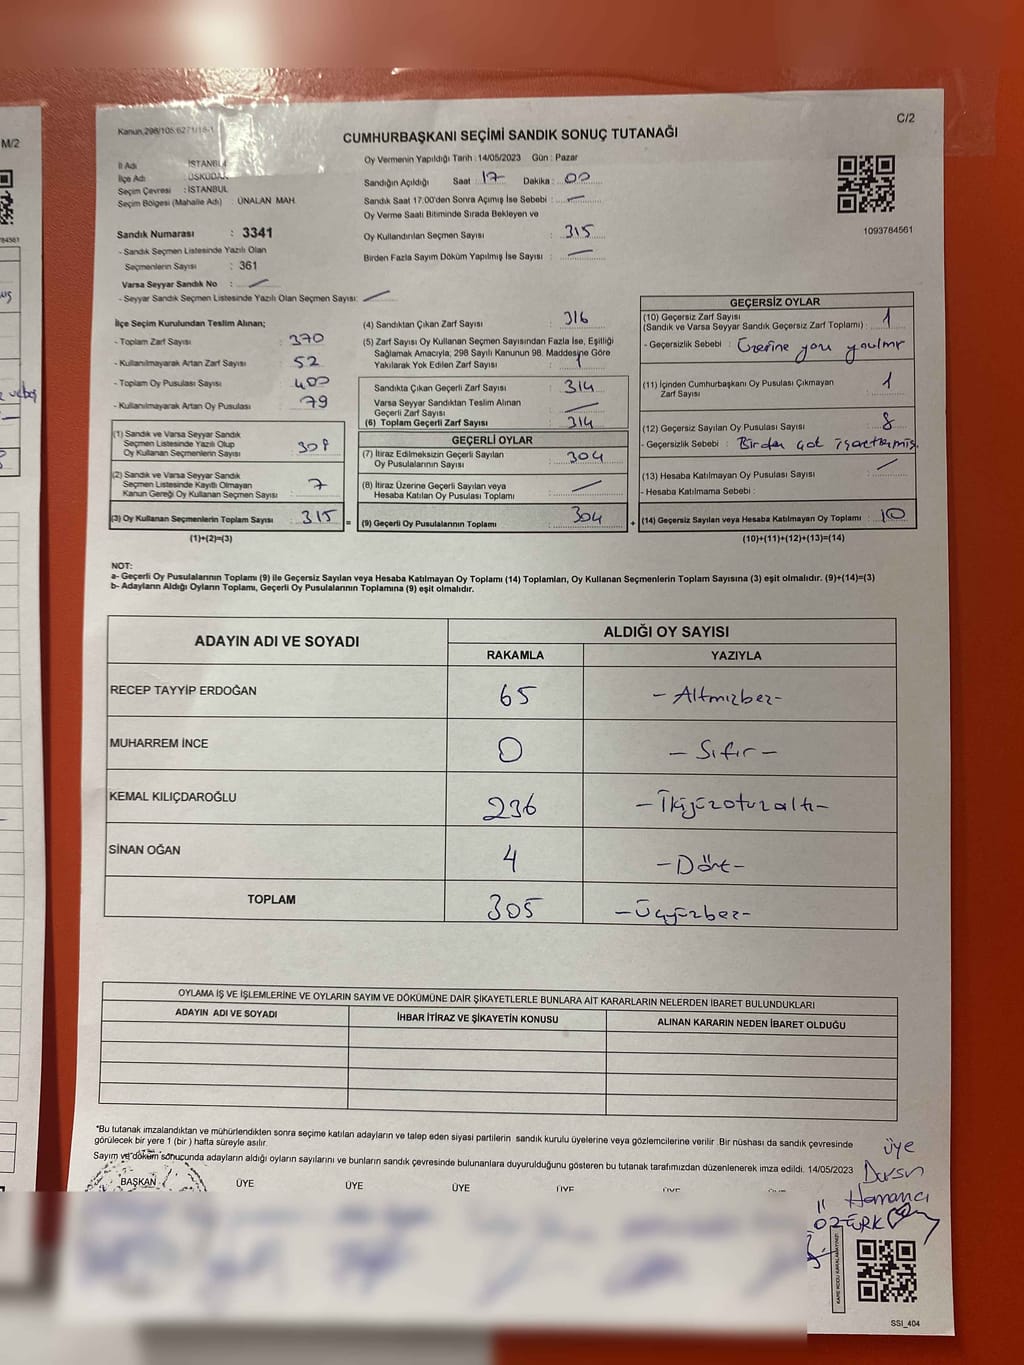 Kanun,298/105 6271/18-1
C/2
CUMHURBAŞKANI SEÇİMİ SANDIK SONUÇ TUTANAĞI
İl Adı : İSTANBUL
İlçe Adı : ÜSKÜDAR
Seçim Çevresi : İSTANBUL
Seçim Bölgesi (Mahalle Adı) : ÜNALAN MAH.
Sandık Numarası : 3341
- Sandık Seçmen Listesinde Yazılı Olan
Seçmenlerin Sayısı : 361
Varsa Seyyar Sandık No : —
- Seyyar Sandık Seçmen Listesinde Yazılı Olan Seçmen Sayısı: —
Oy Vermenin Yapıldığı Tarih : 14/05/2023 Gün : Pazar
Sandığın Açıldığı Saat : 17 Dakika : 00
Sandık Saat 17.00'den Sonra Açımış İse Sebebi : —
Oy Verme Saati Bitiminde Sırada Bekleyen ve
Oy Kullandırılan Seçmen Sayısı : 315
Birden Fazla Sayım Döküm Yapılmış İse Sayısı : —
1093784561
İlçe Seçim Kurulundan Teslim Alınan;
- Toplam Zarf Sayısı : 370
- Kullanılmayarak Artan Zarf Sayısı : 52
- Toplam Oy Pusulası Sayısı : 400
- Kullanılmayarak Artan Oy Pusulası : 79
(1) Sandık ve Varsa Seyyar Sandık
Seçmen Listesinde Yazılı Olup
Oy Kullanan Seçmenlerin Sayısı : 308
(2) Sandık ve Varsa Seyyar Sandık
Seçmen Listesinde Kayıtlı Olmayan
Kanun Gereği Oy Kullanan Seçmen Sayısı : 7
(3) Oy Kullanan Seçmenlerin Toplam Sayısı : 315 =
(1)+(2)=(3)
(4) Sandıktan Çıkan Zarf Sayısı : 316
(5) Zarf Sayısı Oy Kullanan Seçmen Sayısından Fazla İse, Eşitliği
Sağlamak Amacıyla; 298 Sayılı Kanunun 98. Maddesine Göre
Yakılarak Yok Edilen Zarf Sayısı : 1
Sandıkta Çıkan Geçerli Zarf Sayısı : 314
Varsa Seyyar Sandıktan Teslim Alınan
Geçerli Zarf Sayısı : —
(6) Toplam Geçerli Zarf Sayısı : 314
GEÇERLİ OYLAR
(7) İtiraz Edilmeksizin Geçerli Sayılan
Oy Pusulalarının Sayısı : 304
(8) İtiraz Üzerine Geçerli Sayılan veya
Hesaba Katılan Oy Pusulası Toplamı : —
(9) Geçerli Oy Pusulalarının Toplamı : 304 +
GEÇERSİZ OYLAR
(10) Geçersiz Zarf Sayısı
(Sandık ve Varsa Seyyar Sandık Geçersiz Zarf Toplamı) : 1
- Geçersizlik Sebebi : Üzerine yazı yazılmış
(11) İçinden Cumhurbaşkanı Oy Pusulası Çıkmayan
Zarf Sayısı : 1
(12) Geçersiz Sayılan Oy Pusulası Sayısı : 8
- Geçersizlik Sebebi : Birden çok işaretlenmiş
(13) Hesaba Katılmayan Oy Pusulası Sayısı : —
- Hesaba Katılmama Sebebi :
(14) Geçersiz Sayılan veya Hesaba Katılmayan Oy Toplamı : 10
(10)+(11)+(12)+(13)=(14)
NOT:
a- Geçerli Oy Pusulalarının Toplamı (9) ile Geçersiz Sayılan veya Hesaba Katılmayan Oy Toplamı (14) Toplamları, Oy Kullanan Seçmenlerin Toplam Sayısına (3) eşit olmalıdır. (9)+(14)=(3)
b- Adayların Aldığı Oyların Toplamı, Geçerli Oy Pusulalarının Toplamına (9) eşit olmalıdır.
ADAYIN ADI VE SOYADI
ALDIĞI OY SAYISI
RAKAMLA YAZIYLA
RECEP TAYYİP ERDOĞAN 65 -Altmışbeş-
MUHARREM İNCE 0 -Sıfır-
KEMAL KILIÇDAROĞLU 236 -İkiyüzotuzaltı-
SİNAN OĞAN 4 -Dört-
TOPLAM 305 -Üçyüzbeş-
OYLAMA İŞ VE İŞLEMLERİNE VE OYLARIN SAYIM VE DÖKÜMÜNE DAİR ŞİKAYETLERLE BUNLARA AİT KARARLARIN NELERDEN İBARET BULUNDUKLARI
ADAYIN ADI VE SOYADI İHBAR İTİRAZ VE ŞİKAYETİN KONUSU ALINAN KARARIN NEDEN İBARET OLDUĞU
*Bu tutanak imzalandıktan ve mühürlendikten sonra seçime katılan adayların ve talep eden siyasi partilerin sandık kurulu üyelerine veya gözlemcilerine verilir. Bir nüshası da sandık çevresinde
görülecek bir yere 1 (bir) hafta süreyle asılır.
Sayım ve döküm sonucunda adayların aldığı oyların sayılarını ve bunların sandık çevresinde bulunanlara duyurulduğunu gösteren bu tutanak tarafımızdan düzenlenerek imza edildi. 14/05/2023
BAŞKAN ÜYE ÜYE ÜYE ÜYE ÜYE
Üye
Dursun
Hamancı
ÖZTÜRK
SSI_404
M/2
784561